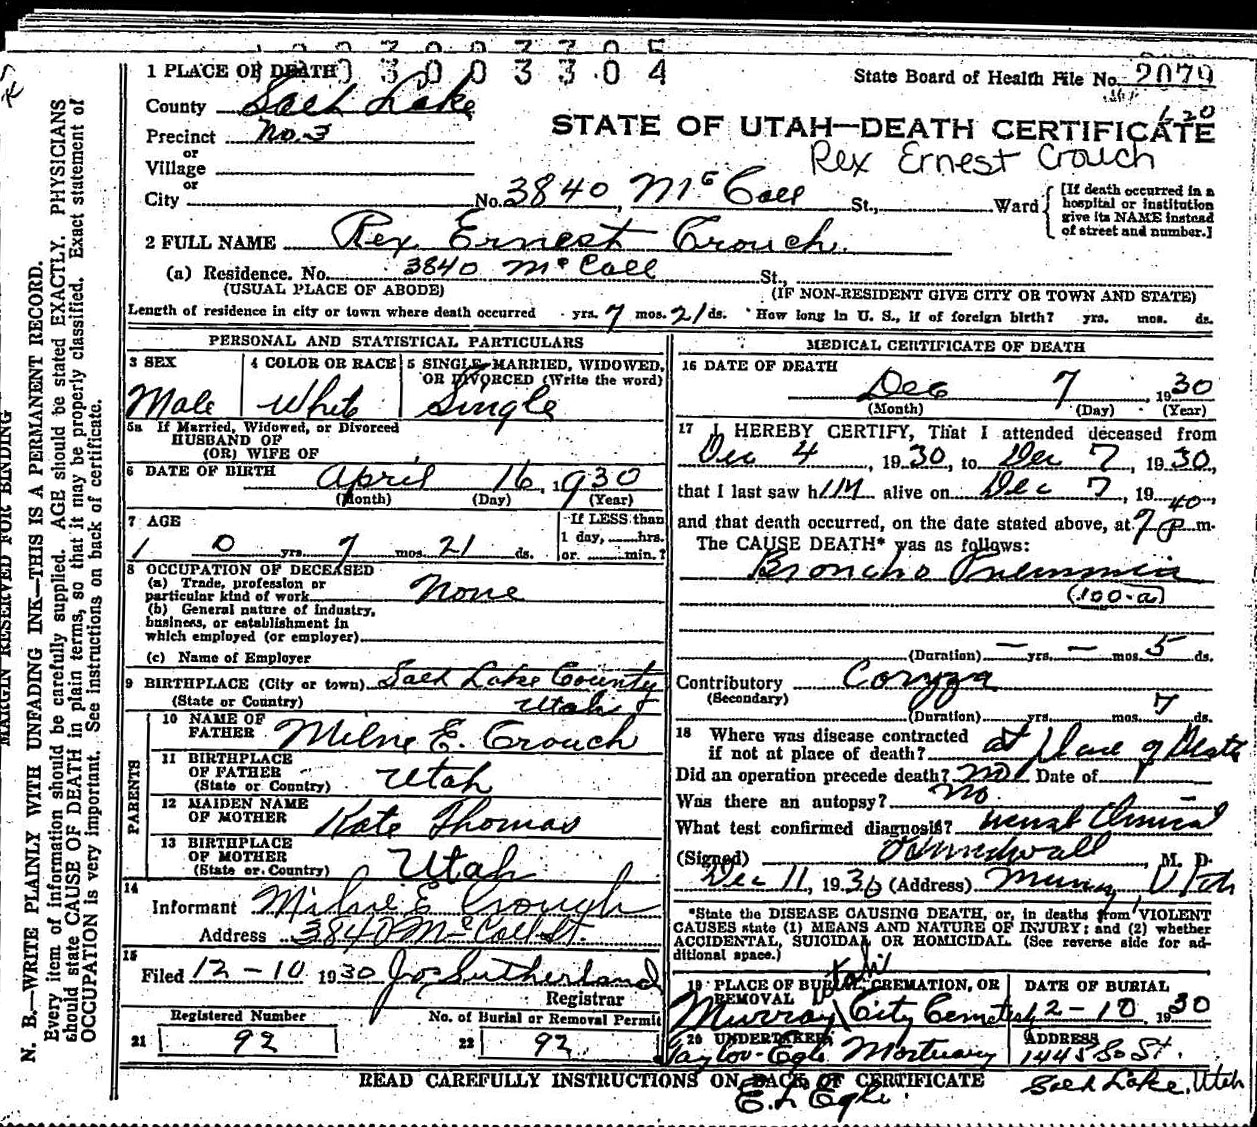 0 3 0 0 3 3 0 4
1 PLACE OF DEATH
State Board of Health File No. 2079
County Salt Lake
620
Precinct No. 3
STATE OF UTAH—DEATH CERTIFICATE
or
Rex Ernest Crouch
Village
or
City No. 3840 McCall St., Ward
[If death occurred in a hospital or institution give its NAME instead of street and number.]
2 FULL NAME Rex Ernest Crouch.
(a) Residence. No. 3840 McCall St.,
(USUAL PLACE OF ABODE) (IF NON-RESIDENT GIVE CITY OR TOWN AND STATE)
Length of residence in city or town where death occurred yrs. 7 mos. 21 ds. How long in U. S., if of foreign birth? yrs. mos. ds.
PERSONAL AND STATISTICAL PARTICULARS
3 SEX 4 COLOR OR RACE 5 SINGLE, MARRIED, WIDOWED, OR DIVORCED (Write the word)
Male White Single
5a If Married, Widowed, or Divorced
HUSBAND OF
(OR) WIFE OF
6 DATE OF BIRTH April 16, 1930
(Month) (Day) (Year)
7 AGE If LESS than
1 day, hrs.
1 0 yrs. 7 mos. 21 ds. or min.?
8 OCCUPATION OF DECEASED
(a) Trade, profession or
particular kind of work None
(b) General nature of industry,
business, or establishment in
which employed (or employer)
(c) Name of Employer
9 BIRTHPLACE (City or town) Salt Lake County
(State or Country) Utah
PARENTS
10 NAME OF
FATHER Milne E. Crouch
11 BIRTHPLACE
OF FATHER Utah
(State or Country)
12 MAIDEN NAME
OF MOTHER Kate Thomas
13 BIRTHPLACE
OF MOTHER Utah
(State or Country)
14
Informant Milne E Crough
Address 3840 McCall St.
15
Filed 12-10 1930 Jos Sutherland
Registrar
Registered Number No. of Burial or Removal Permit
21 92 22 92
MEDICAL CERTIFICATE OF DEATH
16 DATE OF DEATH
Dec 7 1930
(Month) (Day) (Year)
17 I HEREBY CERTIFY, That I attended deceased from
Dec 4, 1930, to Dec 7, 1930,
that I last saw him alive on Dec 7, 1940,
and that death occurred, on the date stated above, at 7 P m.
The CAUSE DEATH* was as follows:
Broncho Pneumonia
(100-a)
(Duration) — yrs. — mos. 5 ds.
Contributory Coryza
(Secondary)
(Duration) yrs. mos. 7 ds.
18 Where was disease contracted
if not at place of death? at place of Death
Did an operation precede death? no Date of
Was there an autopsy? no
What test confirmed diagnosis? usual Clinical
(Signed) M. D.
Dec 11, 1930 (Address) Murray Utah
*State the DISEASE CAUSING DEATH, or, in deaths from VIOLENT
CAUSES state (1) MEANS AND NATURE OF INJURY; and (2) whether
ACCIDENTAL, SUICIDAL OR HOMICIDAL. (See reverse side for ad-
ditional space.)
Utah
19 PLACE OF BURIAL, CREMATION, OR
REMOVAL
DATE OF BURIAL
Murray City Cemetery 12-10 1930
20 UNDERTAKER ADDRESS
Taylor-Egle Mortuary 1445 So St.
READ CAREFULLY INSTRUCTIONS ON BACK OF CERTIFICATE
Salt Lake, Utah
E. L Egle.
MARGIN RESERVED FOR BINDING
N. B.—WRITE PLAINLY WITH UNFADING INK—THIS IS A PERMANENT RECORD.
Every item of information should be carefully supplied. AGE should be stated EXACTLY. PHYSICIANS
should state CAUSE OF DEATH in plain terms, so that it may be properly classified. Exact statement of
OCCUPATION is very important. See instructions on back of certificate.